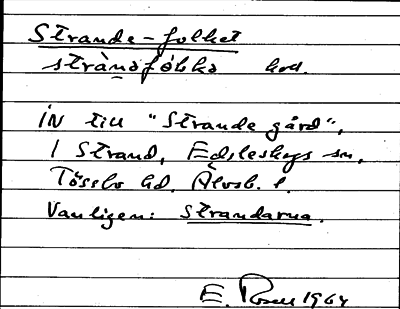 Strande-folket
strànsfóbko koll.
IN till "Strande gård",
1 Strand, Edsleskogs sn,
Tössbo hd. Älvsb. l.
Vanligen: Strandarna.
E. Rosell 1964